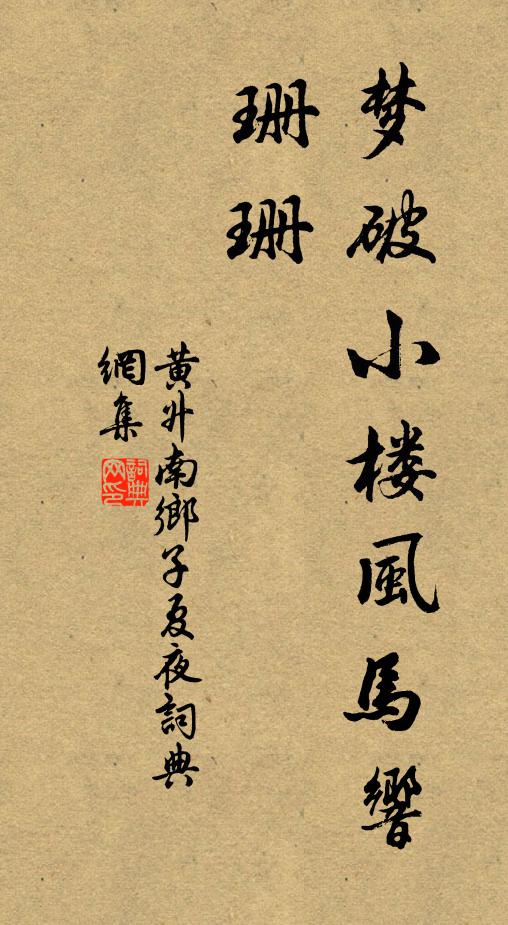 梦破小楼風馬響
珊珊
黄升南鄉子夏夜詞典
網集
詞典網印